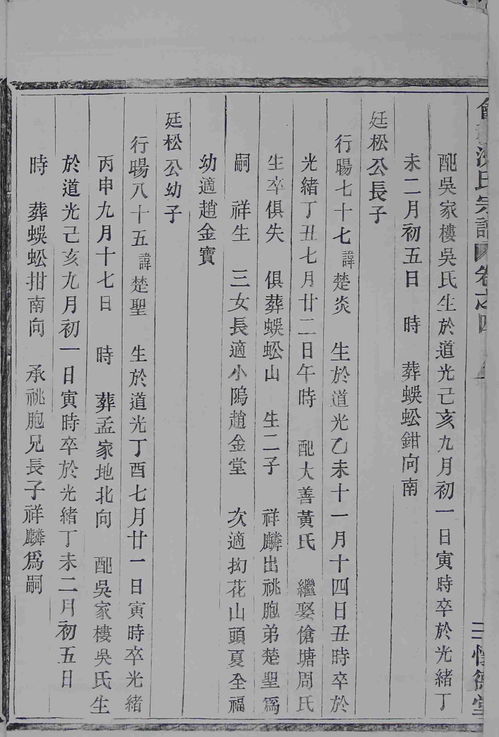 氏宗譜 卷之四
三 懷德堂
配吳家樓吳氏生於道光己亥九月初一日寅時卒於光緒丁
未二月初五日 時 葬蜈蚣鉗向南
廷松公長子
行暘七十七諱楚炎 生於道光乙未十一月十四日丑時卒於
光緒丁丑七月廿二日午時 配大善黃氏 繼娶傖塘周氏
生卒俱失 俱葬蜈蚣山 生二子 祥麟出祧胞弟楚聖爲
嗣 祥生 三女長適小隖趙金堂 次適抝花山頭夏全福
幼適趙金寶
廷松公幼子
行暘八十五諱楚聖 生於道光丁酉七月廿一日寅時卒光緒
丙申九月十七日 時 葬孟家地北向 配吳家樓吳氏生
於道光己亥九月初一日寅時卒於光緒丁未二月初五日
時 葬蜈蚣拑南向 承祧胞兄長子祥麟爲嗣